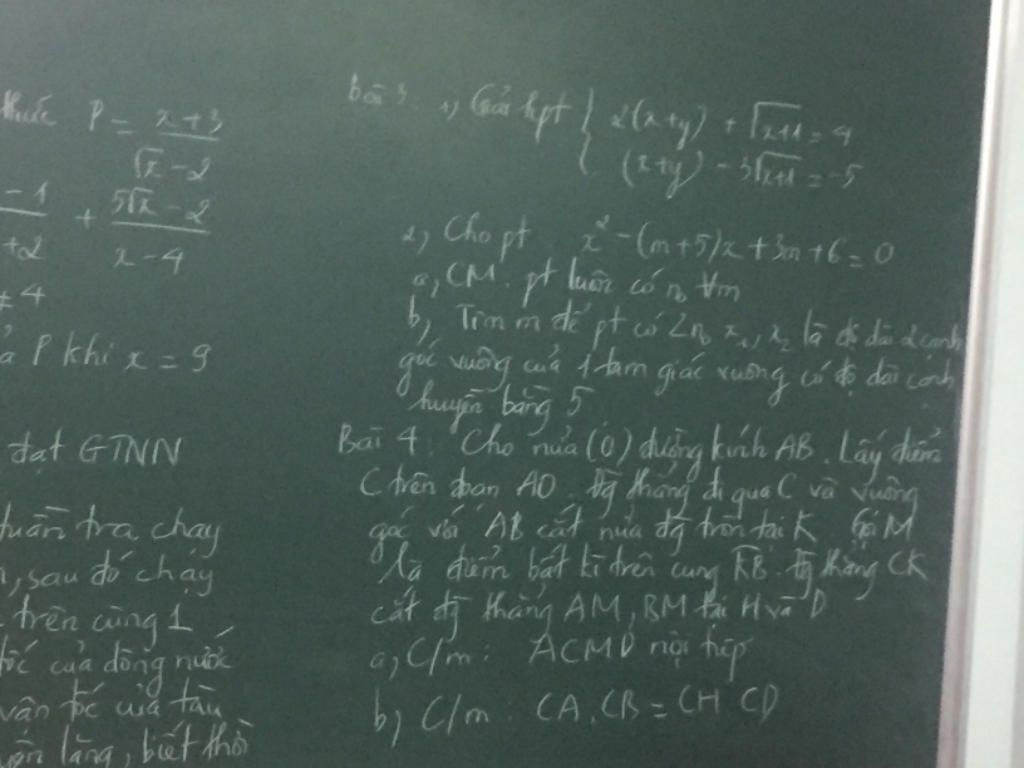 thức P = x+3
√x - 2
- 1 + 5√x - 2
+2 x - 4
≠ 4
P khi x = 9
đạt GTNN
tuần tra chạy
, sau đó chạy
trên cùng 1
tốc của dòng nước
vận tốc của tàu
lặng, biết thời
bài 3: 1, Giải hpt { 2(x+y) + √x+1 = 4
(x+y) - 3√x+1 = -5
2, Cho pt x² - (m+5)x + 3m + 6 = 0
a, CM. pt luôn có n₀ ∀m
b, Tìm m để pt có 2n₀ x₁, x₂ là độ dài 2 cạnh
góc vuông của 1 tam giác vuông có độ dài cạnh
huyền bằng 5
Bài 4: Cho nửa (O) đường kính AB. Lấy điểm
C trên đoạn AO. Đg thẳng đi qua C và vuông
góc với AB cắt nửa đg tròn tại K. Gọi M
là điểm bất kì trên cung KB. Đg thẳng CK
cắt đg thẳng AM, BM tại H và D
a, C/m: ACMD nội tiếp
b, C/m: CA.CB = CH CD